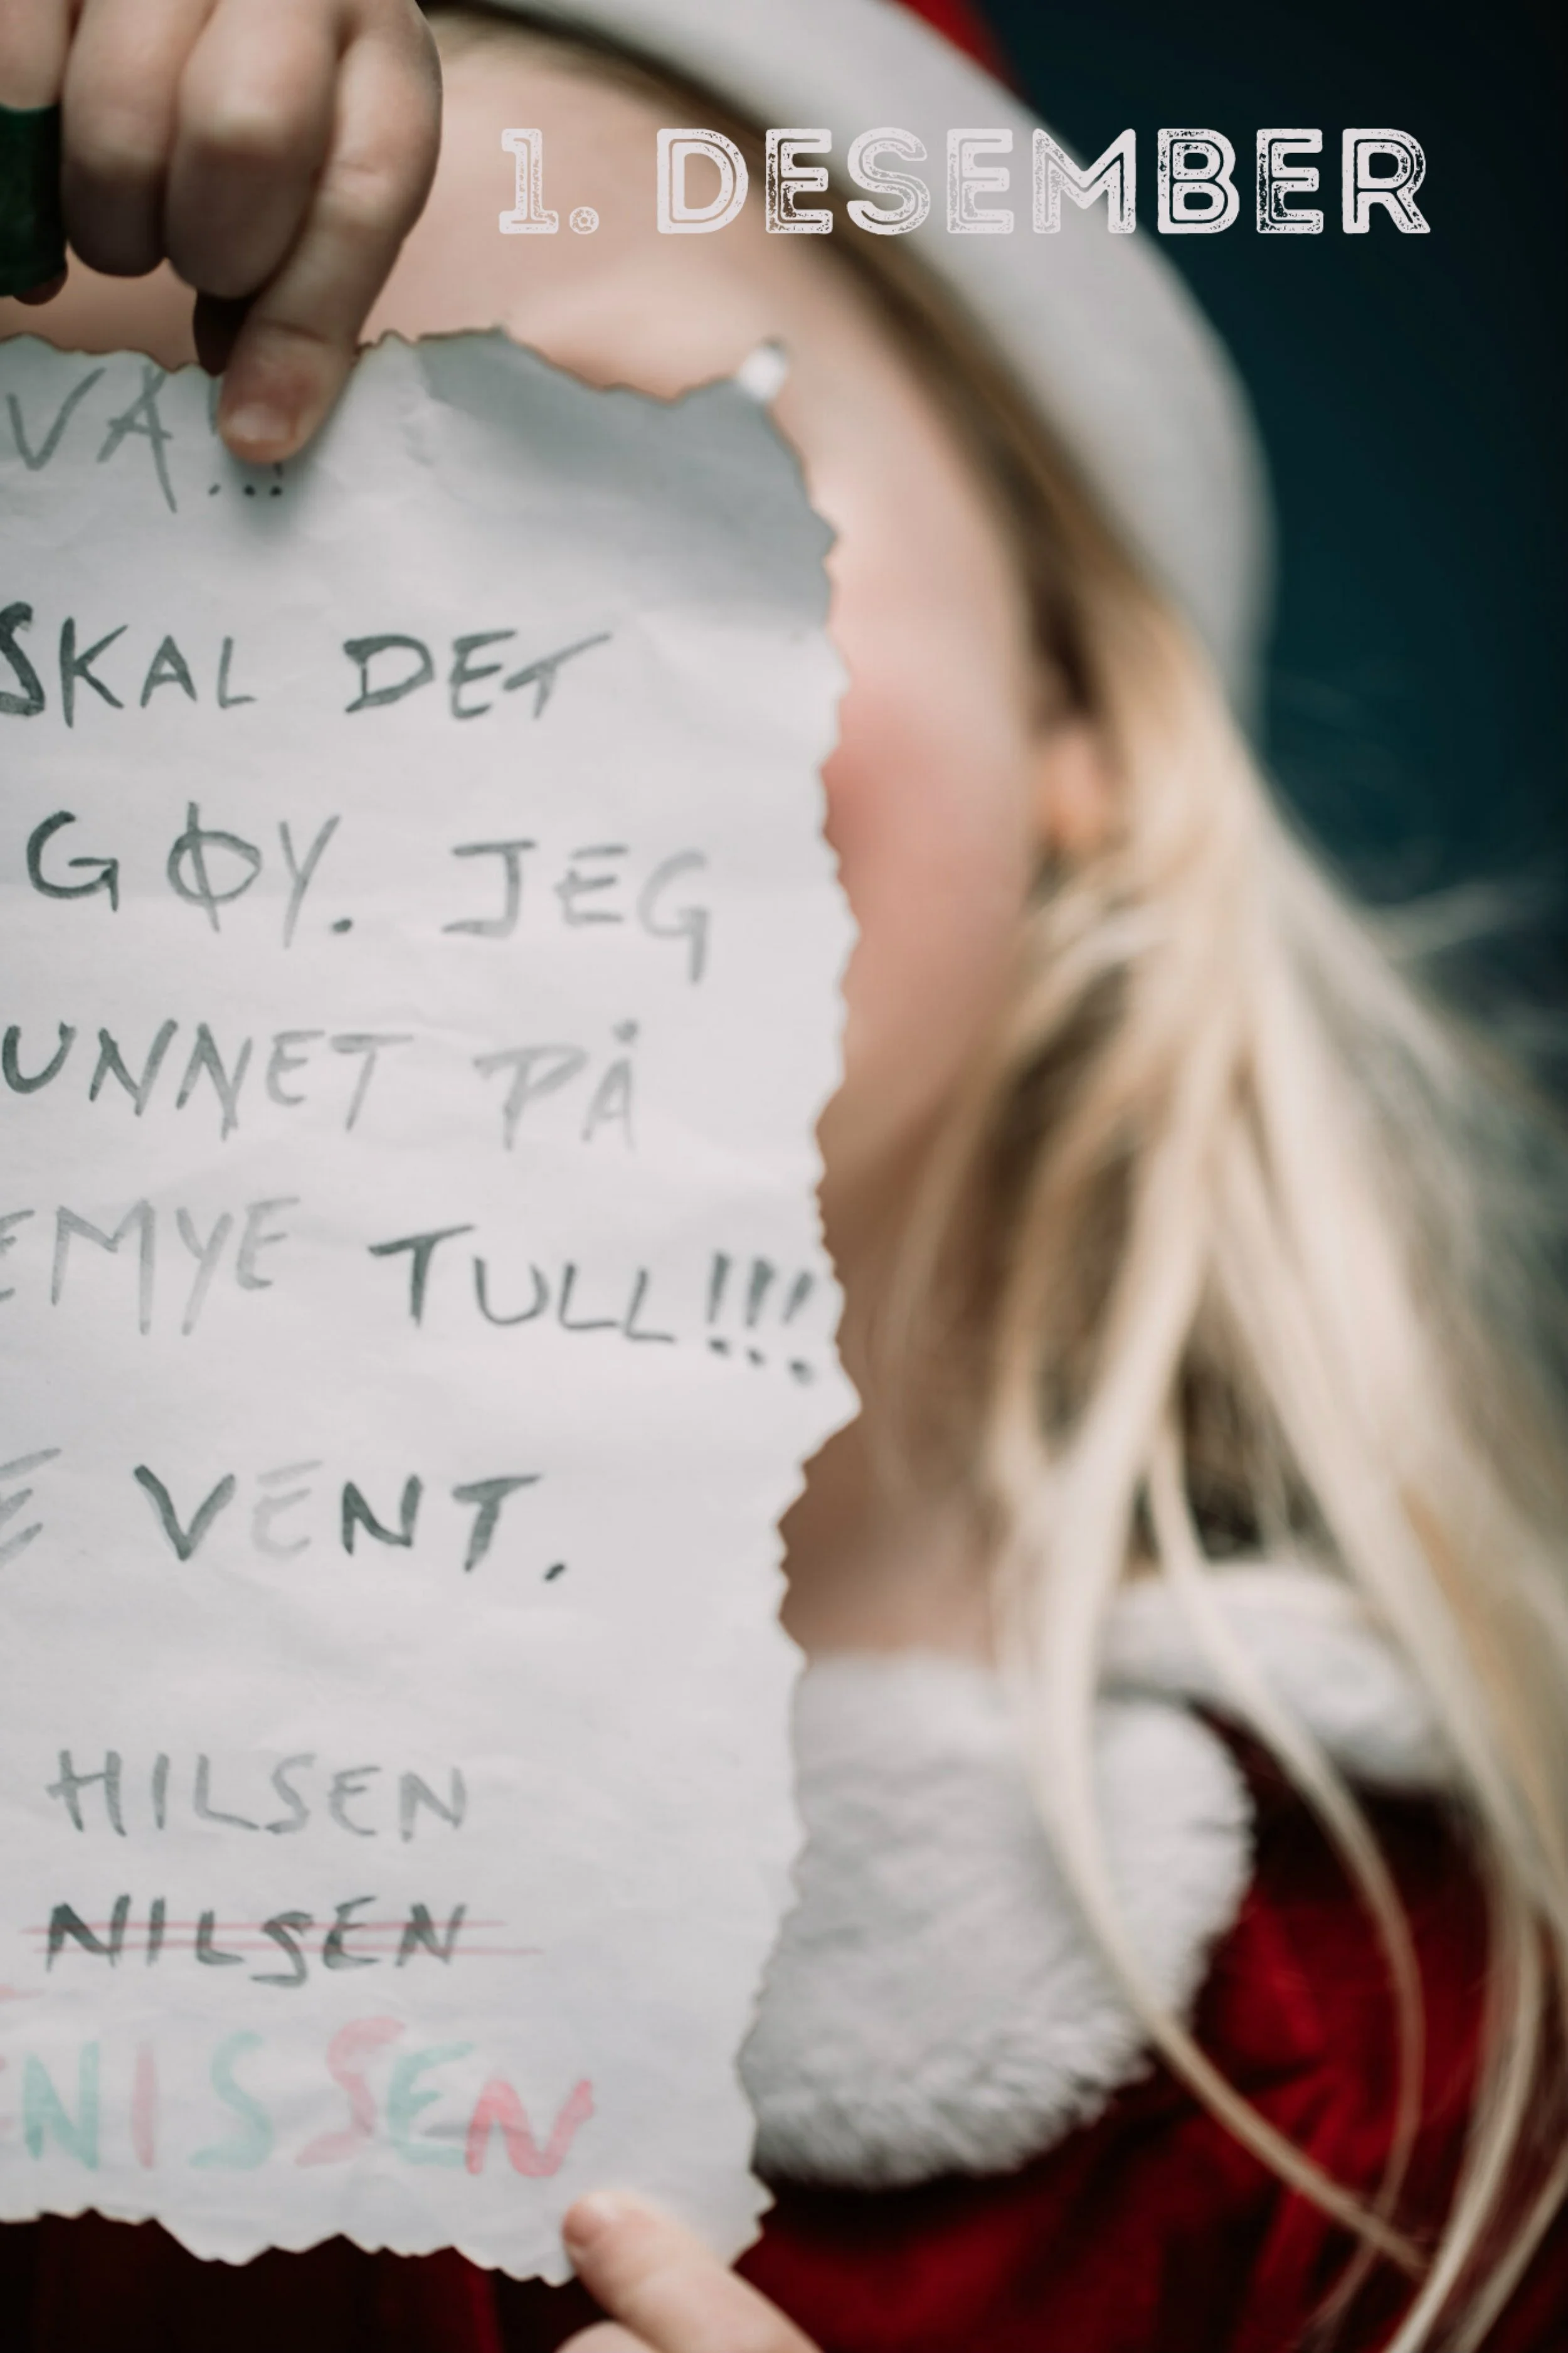 1. DESEMBER
VA!!!
SKAL DET
GØY. JEG
UNNET PÅ
EMYE TULL!!!
E VENT.
HILSEN
NILSEN
NISSEN